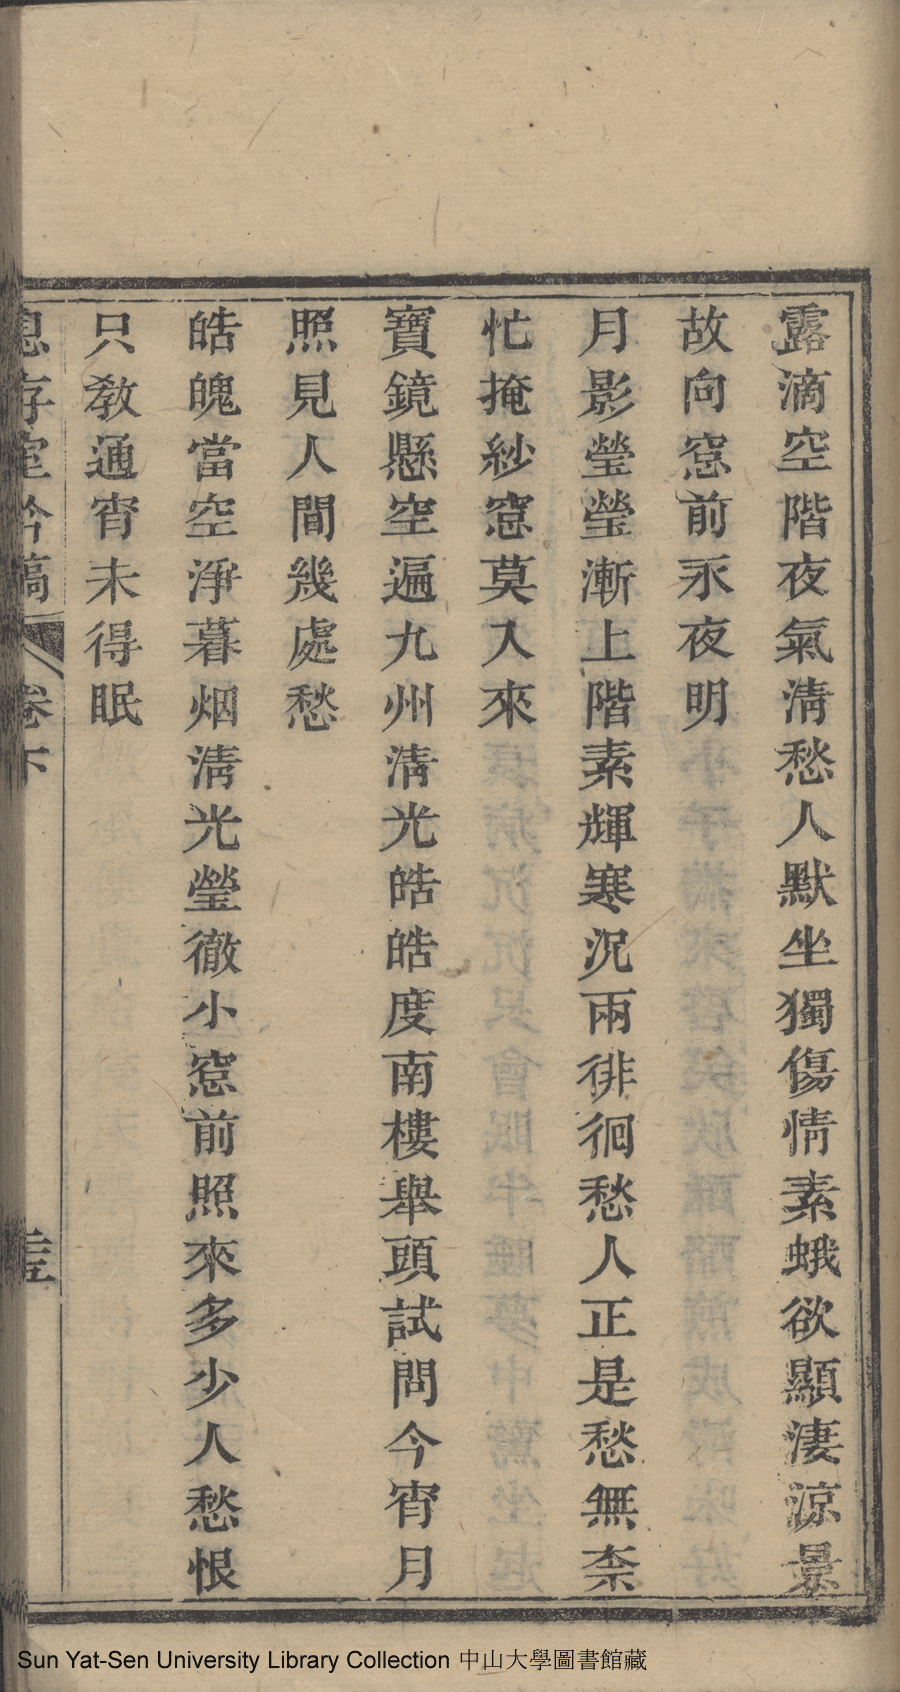 露滴空階夜氣淸愁人默坐獨傷情素蛾欲顯淒涼景
故向窓前永夜明
月影瑩瑩漸上階素輝寒況兩徘徊愁人正是愁無柰
忙掩紗窓莫入來
寶鏡懸空遍九州淸光皓皓度南樓舉頭試問今宵月
照見人間幾處愁
皓魄當空淨暮烟淸光瑩徹小窓前照來多少人愁恨
只敎通宵未得眠
息存室吟稿 卷下
Sun Yat-Sen University Library Collection 中山大學圖書館藏